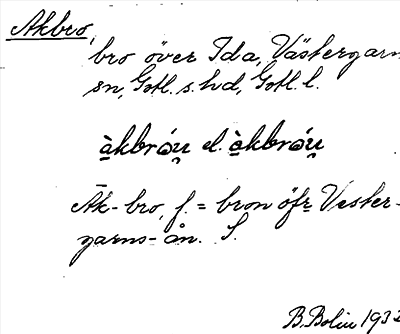 Åkbro,
bro över Ida, Västergarn
sn, Gotl. s. hd, Gotl. l.
àkbrǫ́u̯ el. àkbrǫ́u̯
Åk-bro, f. = bron öfr Vester-
garns-ån. S.
B. Bolin 193